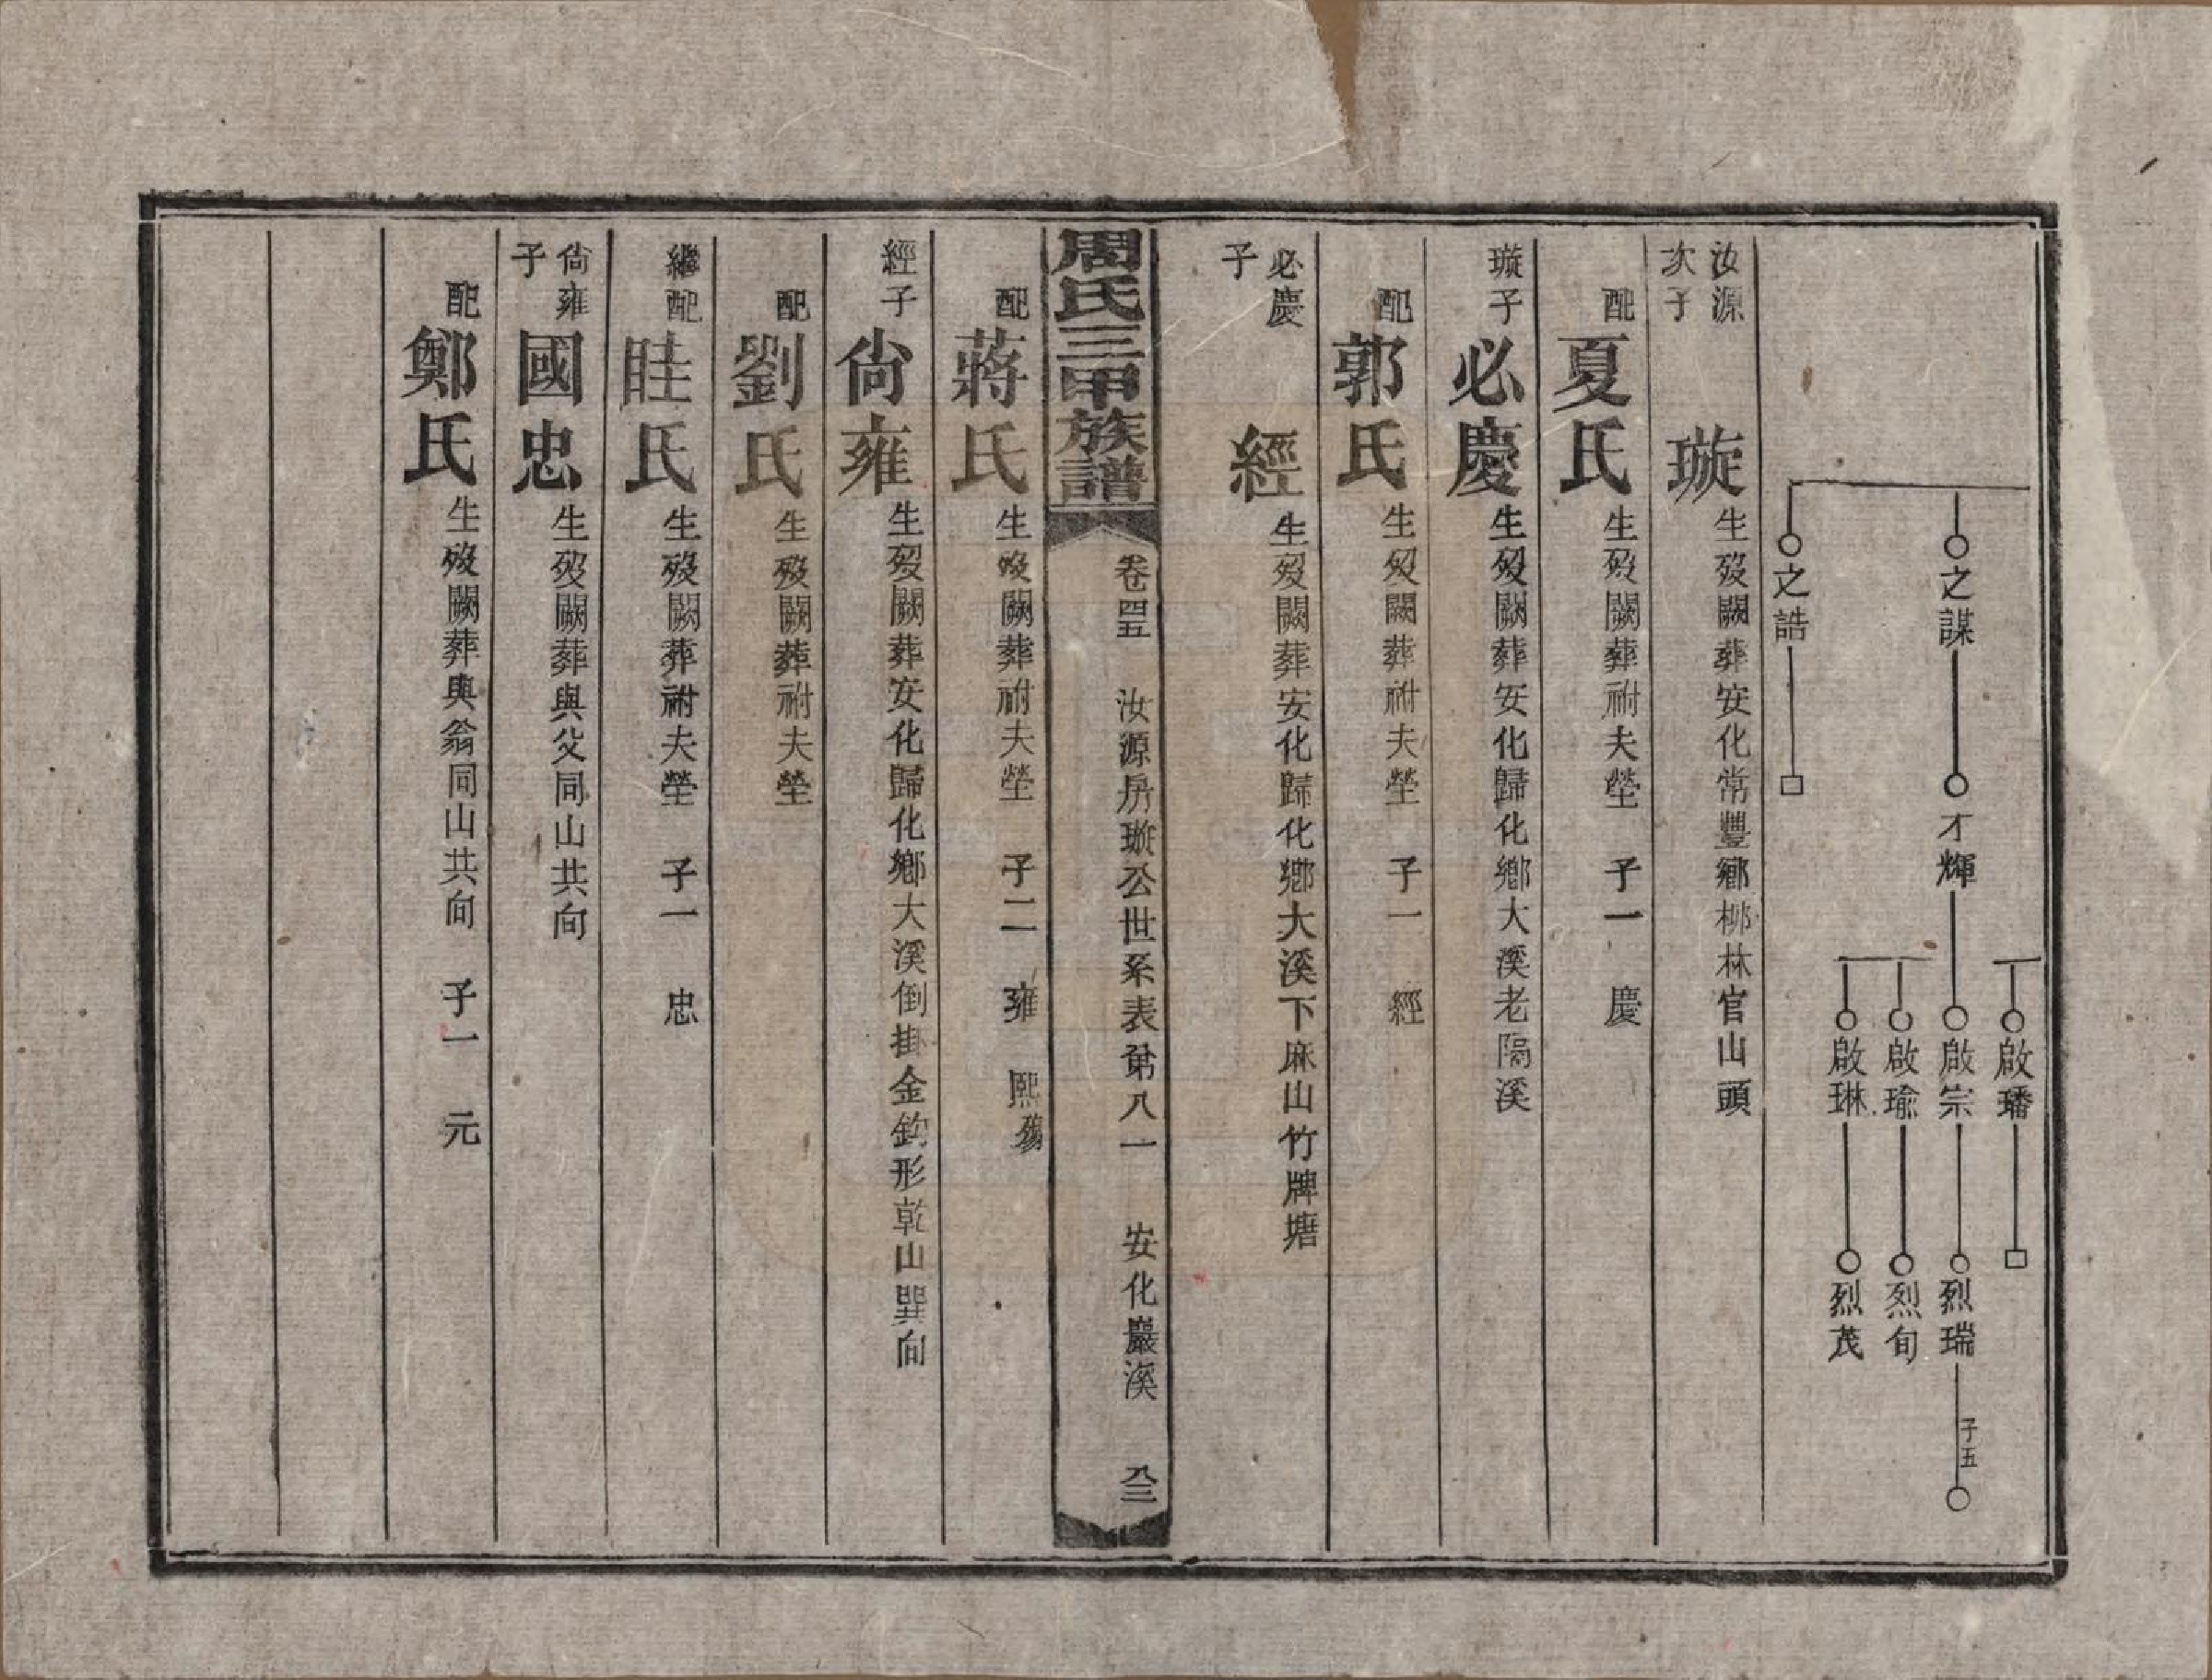 啟璠
之謀 才輝 啟宗 烈瑞 子五
啟瑜 烈旬
啟琳 烈茂
之誥
汝源次子 璇 生歿闕葬安化常豐鄉柳林官山頭
配 夏氏 生歿闕葬祔夫塋 子一 慶
璇子 必慶 生歿闕葬安化歸化鄉大溪老隔溪
配 郭氏 生歿闕葬祔夫塋 子一 經
必慶子 經 生歿闕葬安化歸化鄉大溪下麻山竹牌塘
周氏三甲族譜 卷四五 汝源房璇公世系表第八一 安化巖溪 八三
配 蔣氏 生歿闕葬祔夫塋 子二 雍 熙殤
經子 尙雍 生歿闕葬安化歸化鄉大溪倒掛金鈎形乾山巽向
配 劉氏 生歿闕葬祔夫塋
繼配 眭氏 生歿闕葬祔夫塋 子一 忠
尙雍子 國忠 生歿闕葬與父同山共向
配 鄭氏 生歿闕葬與翁同山共向 子一 元